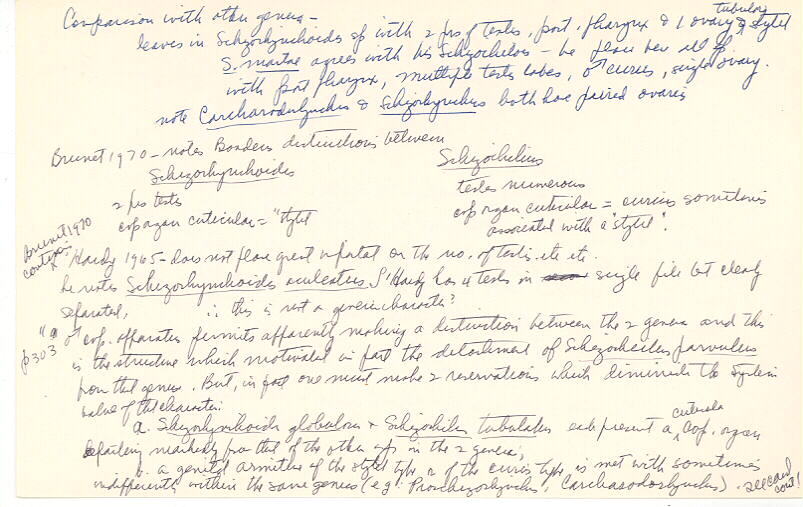 Comparison with other genera –
leaves in Schizorhynchoides sp with 2 prs of testes, post. pharynx & 1 ovary & tubular stylet
S. martae agrees with his Schizochilus – he places here all
with post pharynx, multiple testes lobes, ♂ cirrus, single ovary.
note Carcharodorhynchus & Schizorhynchus both have paired ovaries
Brunet 1970 – notes Bondens distinctions between
Schizorhynchoides
Schizochilus
2 prs testes
testes numerous
cop organ cuticular = "stylet
cop organ cuticular = cirrus sometimes
associated with a "stylet".
Brunet 1970
continues
Hardy 1965 – does not place great importance on the no. of testis etc etc.
he notes Schizorhynchoides aculeatus of Hardy has 4 testes in single file but clearly
separated, ∴ this is not a generic character?
p 303
"a ♂ cop. apparatus permits apparently making a distinction between the 2 genera and this
is the structure which motivated in part the detachment of Schizochilus parvulus
from that genus. But, in fact one must make 2 reservations which diminish the system
value of the character:
a. Schizorhynchoides globulosus & Schizochilus tubulatus each present a cuticula cop. organ
departing markedly from that of the other sps in the 2 genera;
b. a genital armature of the stylet type or of the cirrus type is met with sometimes
indifferently within the same genus (eg: Proschizorhynchus, Carcharodorhynchus). see card
cont!